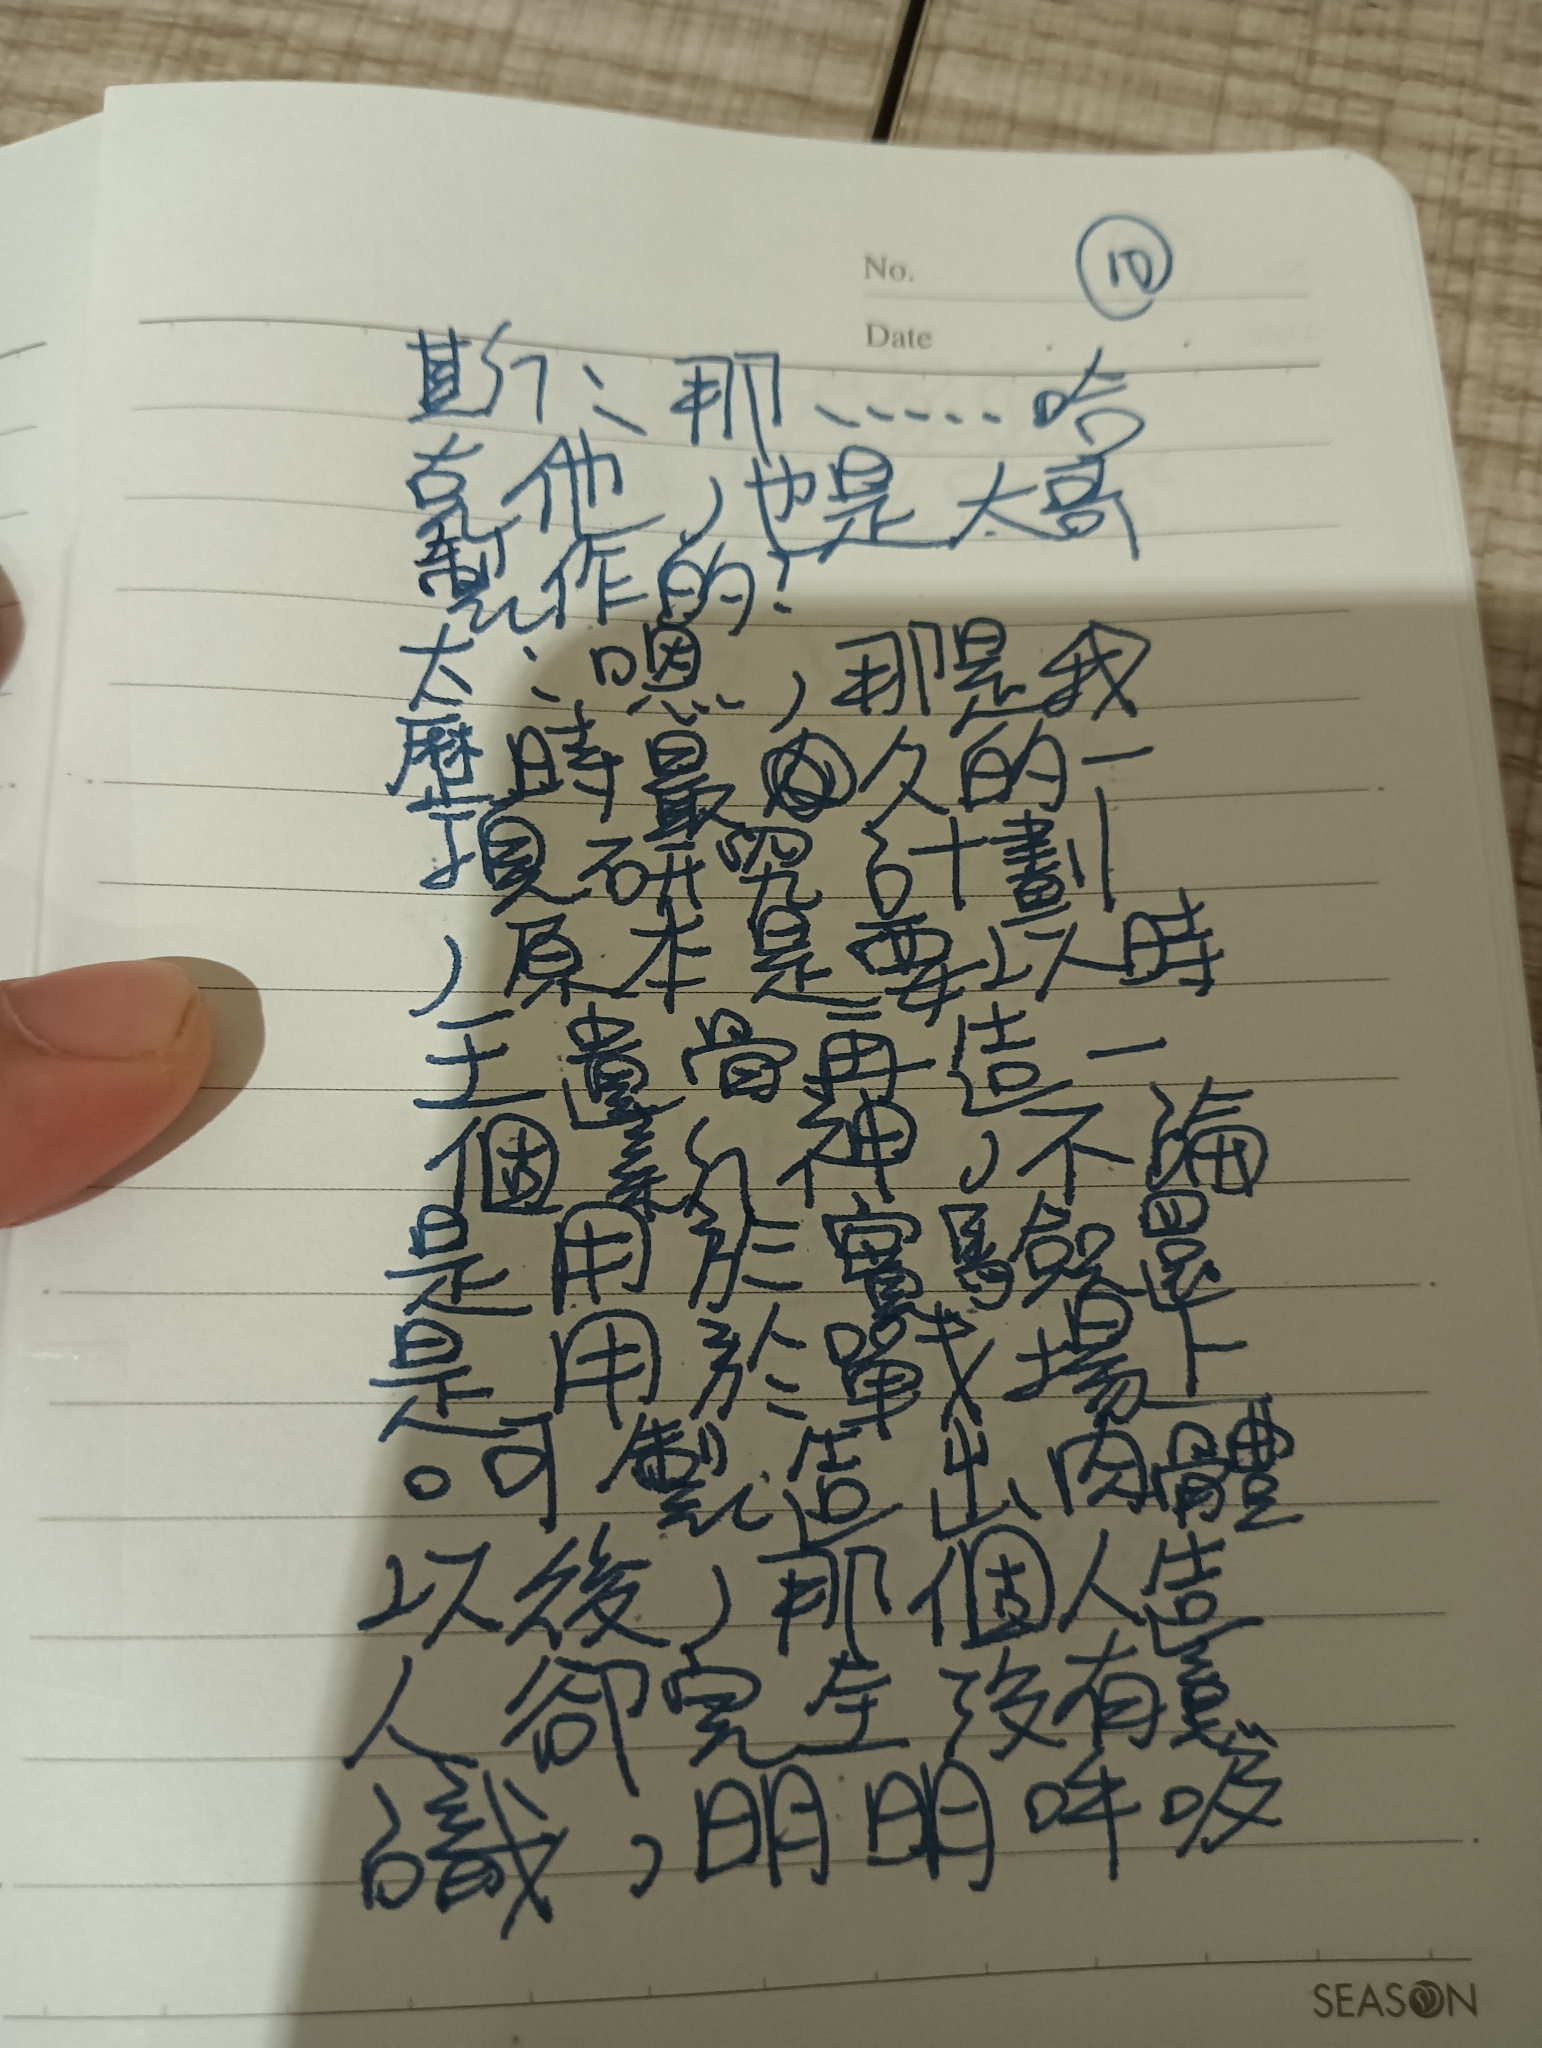 No. 10
Date
斯:那......哈
克他,也是大哥
製作的?
大:嗯,那是我
歷時最久的一
項研究計劃
,原本是要以時
王遺骨再造一
個新神,不論
是用於實驗還
是用於戰場上
。可製造出肉體
以後,那個人造
人卻完全沒有意
識,明明呼吸
SEASON